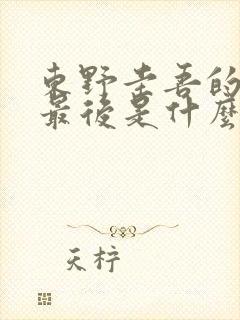 東野圭吾的
最後是什麼
天柠